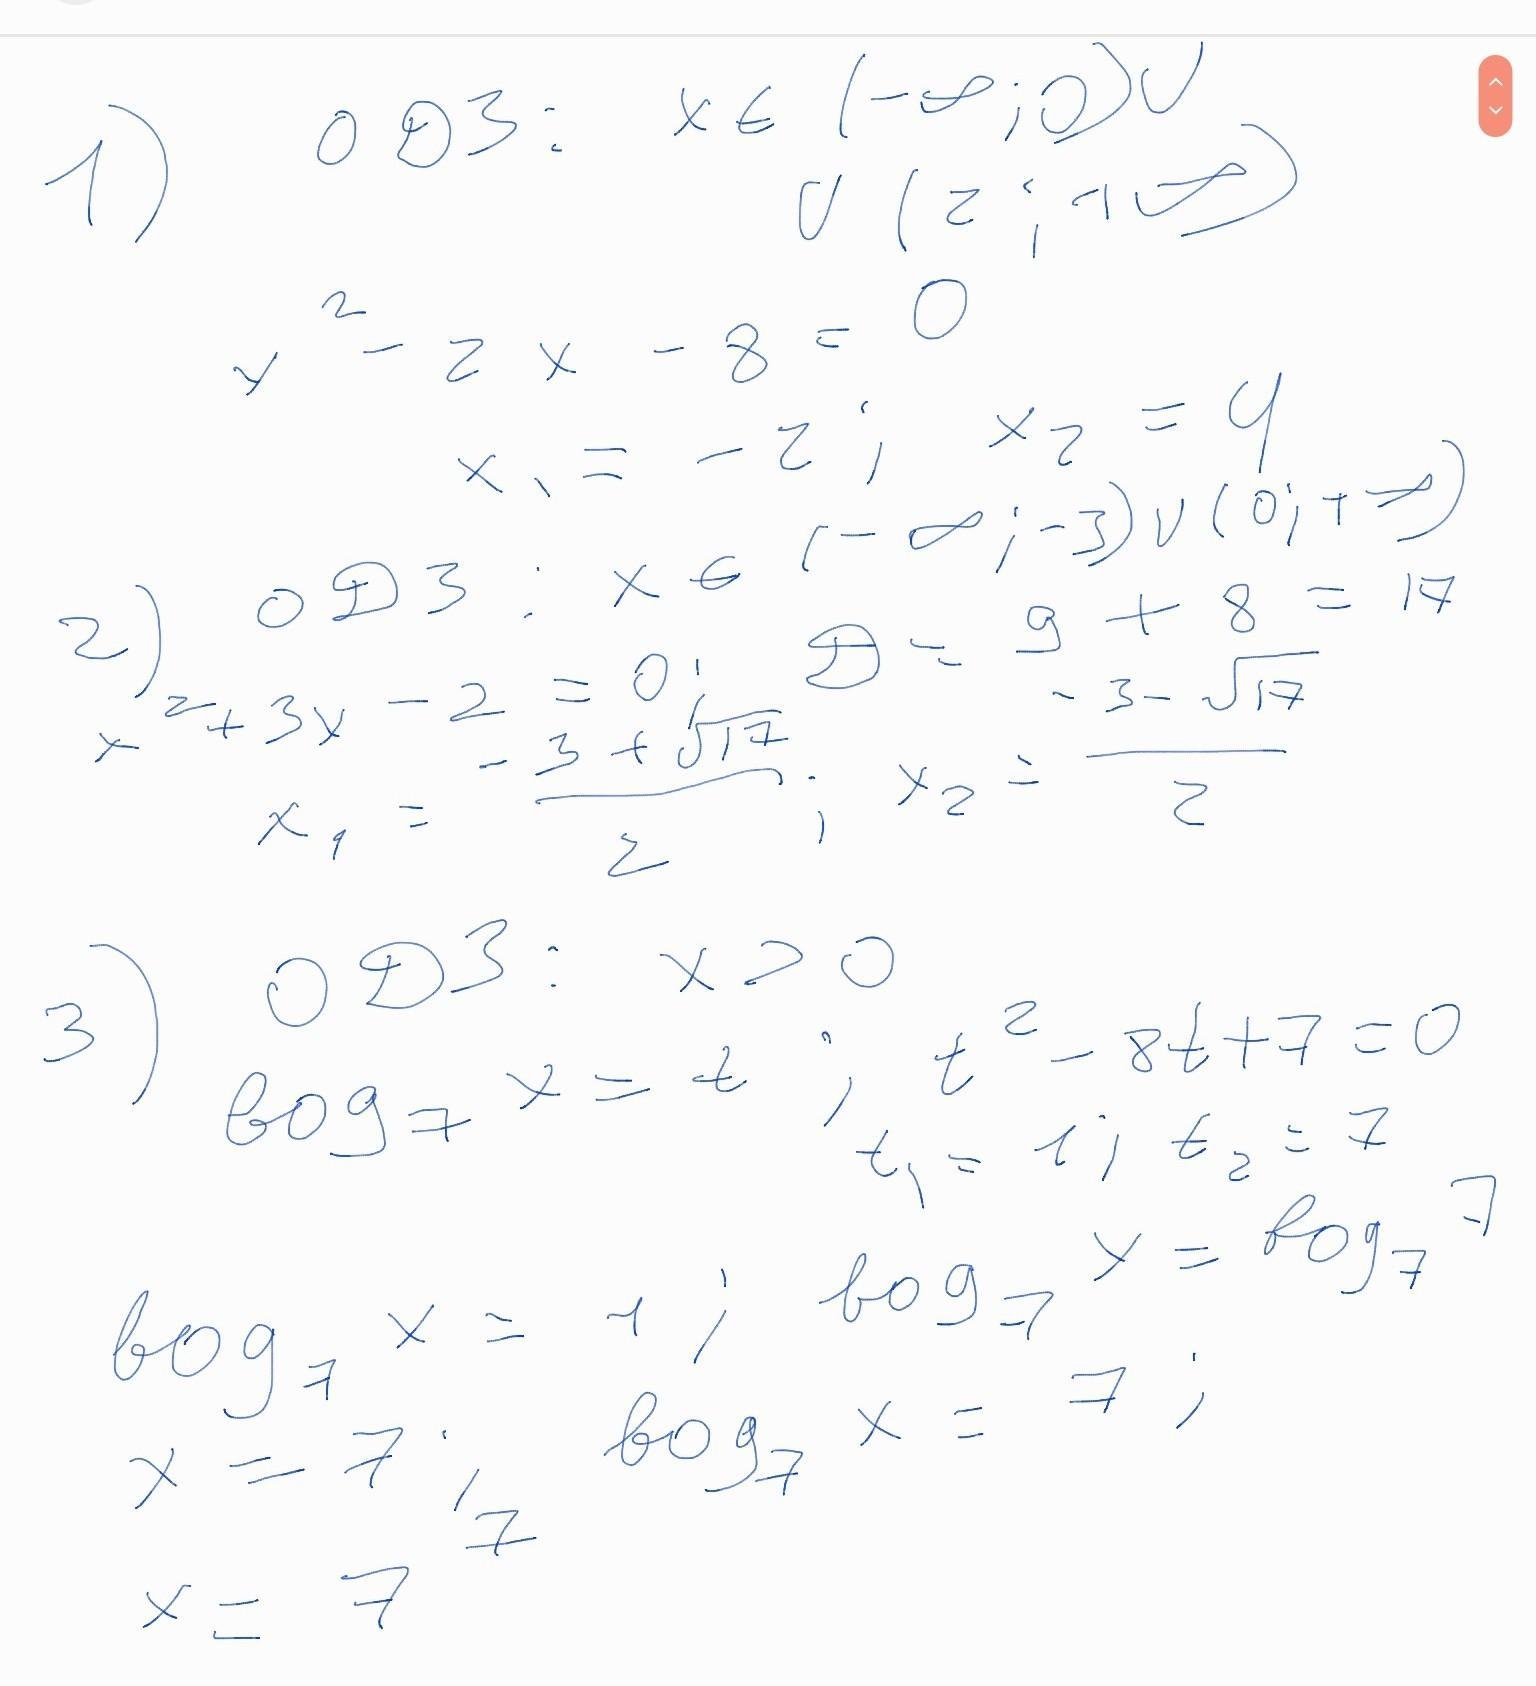 1) ОДЗ: x ∈ (-∞; 0) ∪
∪ (2; +∞)
x² - 2x - 8 = 0
x₁ = -2; x₂ = 4
2) ОДЗ: x ∈ (-∞; -3) ∪ (0; +∞)
x² + 3x - 2 = 0; D = 9 + 8 = 17
x₁ = (-3 + √17)/2; x₂ = (-3 - √17)/2
3) ОДЗ: x > 0
log₇ x = t; t² - 8t + 7 = 0
t₁ = 1; t₂ = 7
log₇ x = 1; log₇ x = log₇ 7
x = 7; log₇ x = 7;
x = 7⁷